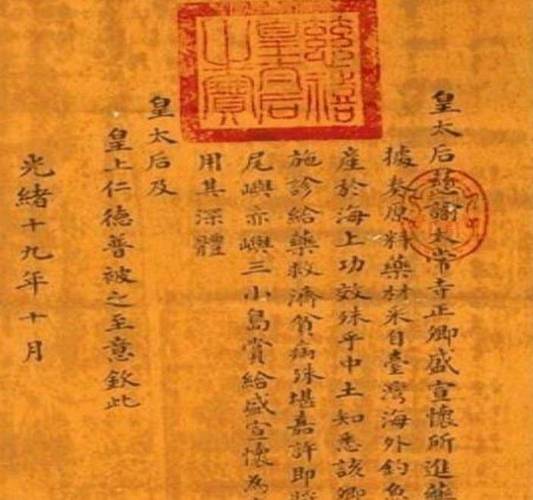 慈禧
皇太后
之寶
皇太后慈諭太常寺正卿盛宣懷所進藥
據奏原料藥材采自臺灣海外釣魚
產於海上功效殊乎中土知悉該卿
施診給藥救濟貧病殊堪嘉許即將
尾嶼赤嶼三小島賞給盛宣懷為
用其深體
皇太后及
皇上仁德普被之至意欽此
光緒十九年十月